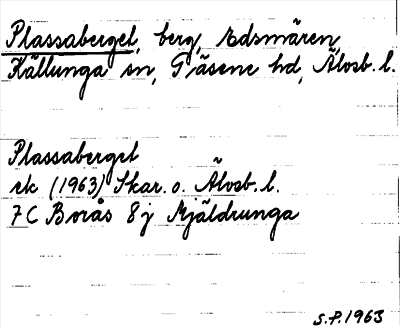 Plassaberget, berg, Edsmären,
Källunga sn, Gäsene hd, Älvsb. l.
Plassaberget
ek (1963) Skar. o. Älvsb. l.
7 C Borås 8 j Mjäldrunga
S.P. 1963